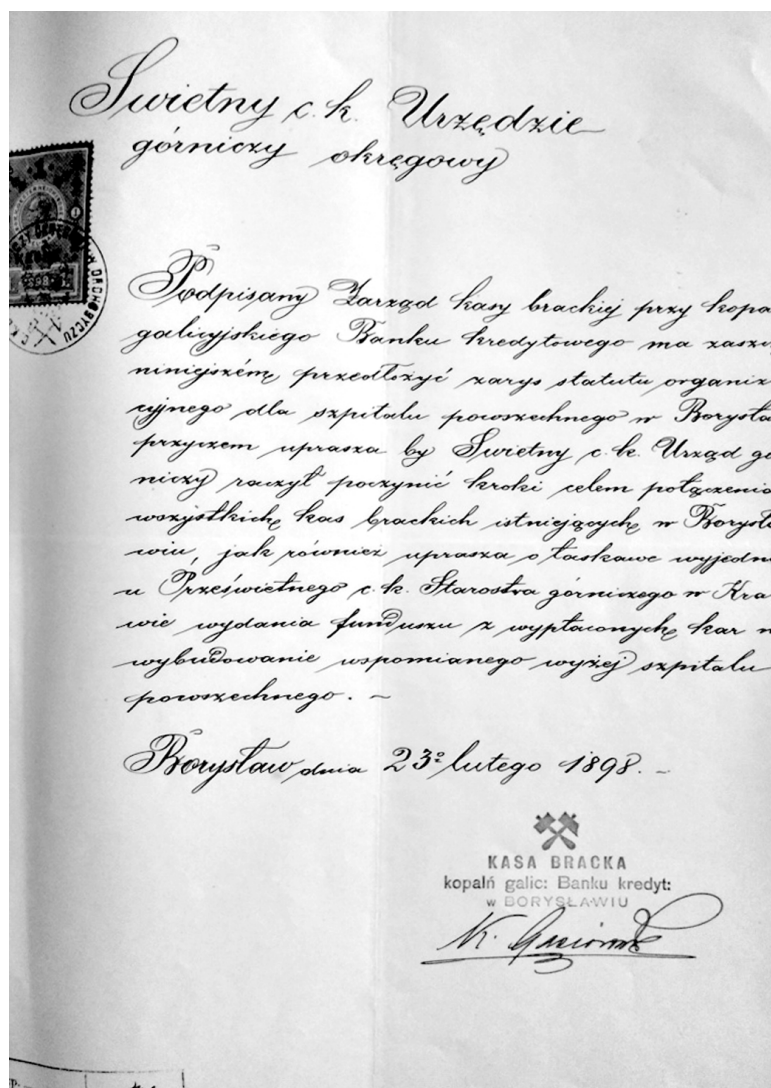 Swietny c. k. Urzędzie
górniczy okręgowy
DROHOBYCZU
Podpisany Zarząd kasy brackiej przy kopa
galicyjskiego Banku kredytowego ma zaszc
niniejszém przedłożyć zarys statutu organiz
cyjnego dla szpitalu powszechnego w Borysła
przyczem uprasza by Swietny c. k. Urząd gó
niczy raczył poczynić kroki celem połączenia
wszystkich kas brackich istniejących w Borysła
wiu, jak również uprasza o łaskawe wyjedna
u Prześwietnego c. k. Starostwa górniczego w Kra
wie wydania funduszu z wypłaconych kar n
wybudowanie wspomianego wyżej szpitalu
powszechnego. ~
Borysław dnia 23º lutego 1898. ~
KASA BRACKA
kopalń galic: Banku kredyt:
w BORYSŁAWIU